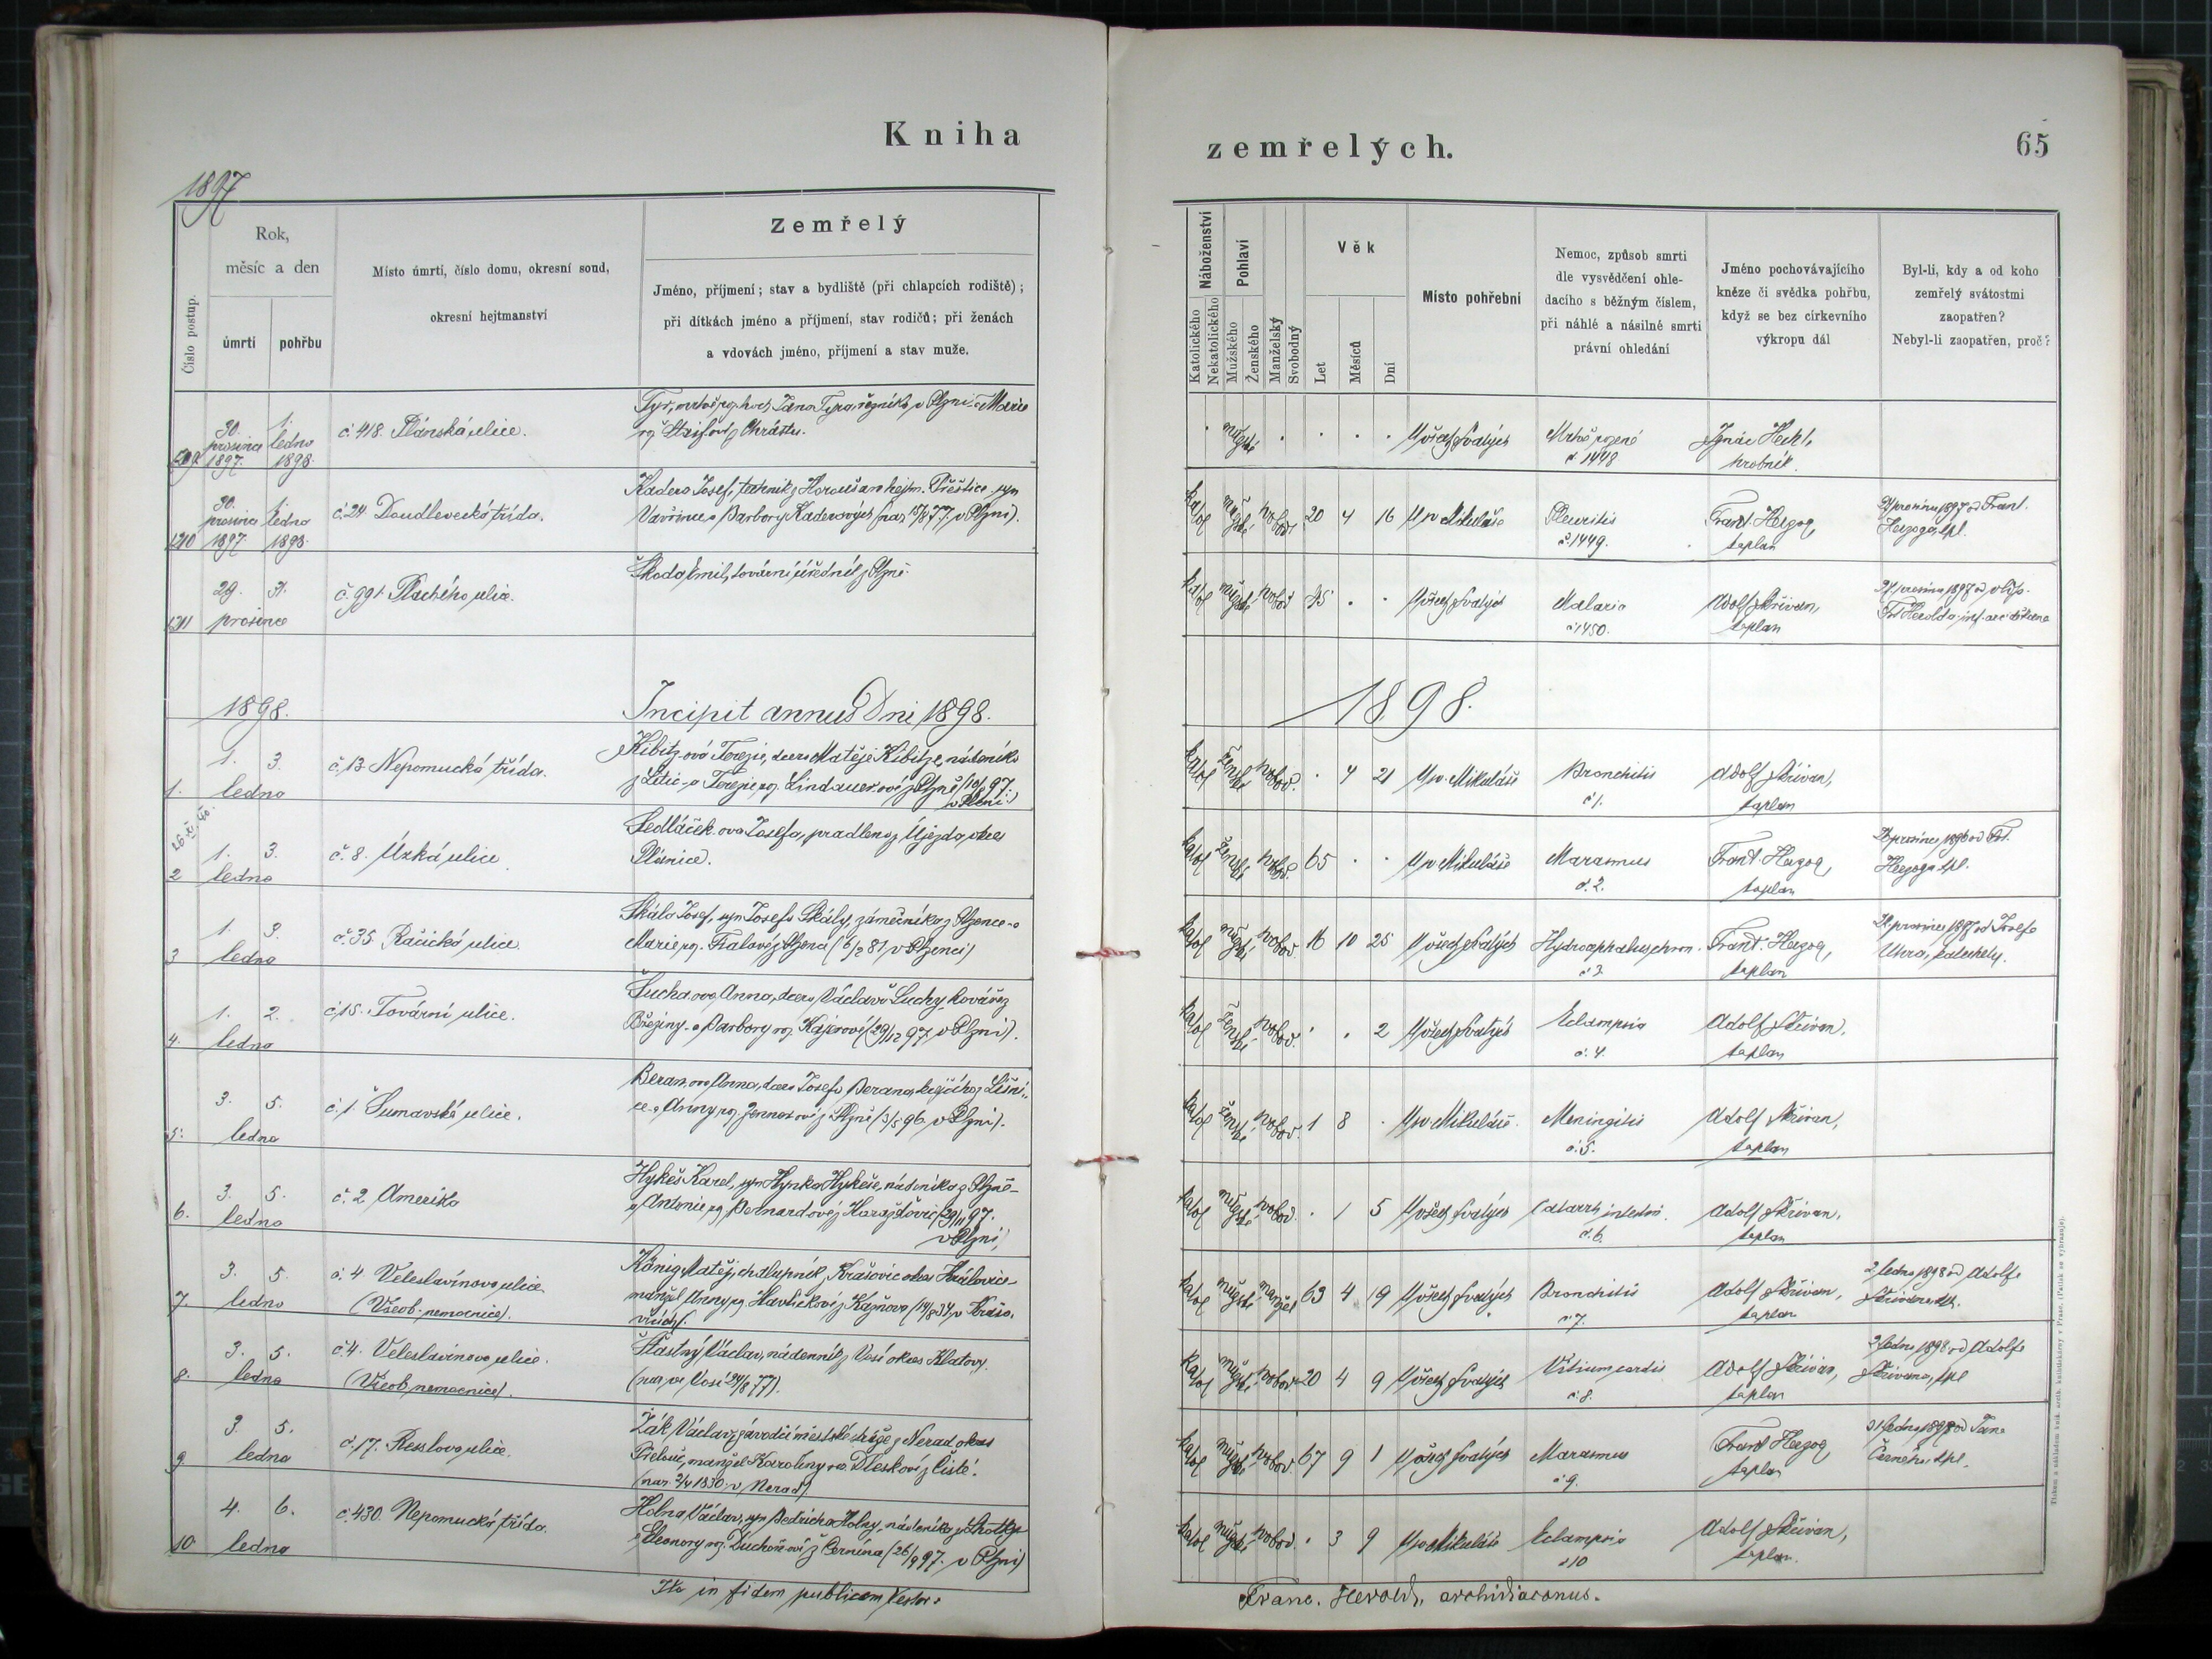 Kniha
zemřelých.
65
1897
Číslo postup.
Rok,
měsíc a den
úmrtí
pohřbu
Místo úmrtí, číslo domu, okresní soud,
okresní hejtmanství
Zemřelý
Jméno, příjmení; stav a bydliště (při chlapcích rodiště);
při dítkách jméno a příjmení, stav rodičů; při ženách
a vdovách jméno, příjmení a stav muže.
Náboženství
Katolického
Nekatolického
Pohlaví
Mužského
Ženského
Manželský
Svobodný
Věk
Let
Měsíců
Dní
Místo pohřební
Nemoc, způsob smrti
dle vysvědčení ohle-
dacího s běžným číslem,
při náhlé a násilné smrti
právní ohledání
Jméno pochovávajícího
kněze či svědka pohřbu,
když se bez církevního
výkropu dál
Byl-li, kdy a od koho
zemřelý svátostmi
zaopatřen?
Nebyl-li zaopatřen, proč?
30. 1.
prosince ledna
1897. 1898.
č. 418. Plánská ulice.
Marie
z Chrástu.
mužské
U všech Svatých
Mrtvě rozené
č. 1448
Ignác Hechl,
hrobník.
30. 1.
prosince ledna
1897. 1898.
č. 24 Doudlevecká třída.
Kadera Josef, technik z hejtm. Přeštice, syn
Vavřince a Barbory Kaderových (nar. 15/8 77. v Plzni).
katol. mužské svobod. 20 4 16
U sv. Mikuláše
Pleuritis
č. 1449.
Frant. Herzog,
kaplan
prosince 1897 od Frant.
Herzoga, kpl.
29. 31.
prosince
č. 991 Plachého ulice.
Škoda Emil, tovární úředník z Plzně.
katol. mužské svobod. 45
U všech Svatých
Malaria
č. 1450.
Adolf Skřivan,
kaplan
prosince 1897 od
Herolda, inf. arciděkana
1898.
Incipit annus Dni 1898.
1898.
1. 1. 3.
ledna
č. 13 Nepomucká třída.
Kibitz-ová Terezie, dcera Matěje Kibitze, nádeníka
z Litic a Terezie roz. Lindauer-ové z Plzně
v Plzni)
katol. ženské svobod. 4 21
U sv. Mikuláše
Bronchitis
č. 1.
Adolf Skřivan,
kaplan
2 1. 3.
ledna
č. 8. Úzká ulice
Sedláček-ova Josefa, pradlena z Újezda, okres
Plánice.
katol. ženské svobod. 65
U sv. Mikuláše
Marasmus
č. 2.
Frant. Herzog,
kaplan
Herzoga kpl.
3 1. 3.
ledna
č. 35. Račická ulice.
Skála Josef, syn Josefa Skály, zámečníka z Plzence a
Marie roz. Fialové z Plzence (6/2 81 v Plzenci)
katol. mužské svobod. 16 10 25
U všech Svatých
Hydrocephalus chron.
č. 3.
Frant. Herzog,
kaplan
prosince 1897 od Josefa
Uhra, katechety.
4. 1. 2.
ledna
č. 15. Tovární ulice.
Sucha-ova Anna, dcera Václava Suchy, kováře z
Březiny a Barbory roz. Kajerové (29/12 97. v Plzni).
katol. ženské svobod. 2
U všech Svatých
Eclampsia
č. 4.
Adolf Skřivan,
kaplan
5. 3. 5.
ledna
č. 1. Šumavská ulice.
Beran-ova Anna, dcera Josefa Berana, krejčího z Líšni-
ce a Anny roz. z Plzně (3/5 96. v Plzni).
katol. ženské svobod. 1 8
U sv. Mikuláše.
Meningitis
č. 5.
Adolf Skřivan,
kaplan
6. 3. 5.
ledna
č. 2 Amerika
Hykeš Karel, syn Hynka Hykeše, nádeníka z Plzně
a Antonie roz. Bernardové z Horažďovic (29/11 97.
v Plzni)
katol. mužské svobod. 1 5
U všech Svatých
Catarrh intestin.
č. 6.
Adolf Skřivan,
kaplan
7. 3. 5.
ledna
č. 4 Veleslavínova ulice
(Všeob. nemocnice).
König Matěj, chalupník z Krašovic okres Kralovice
manžel Anny roz. Havlíčkové z Kaznova (14/8 34 v Krašo-
vicích).
katol. mužské manžel 63 4 19
U všech Svatých
Bronchitis
č. 7.
Adolf Skřivan,
kaplan
2 ledna 1898 od Adolfa
Skřivana, kpl.
8. 3. 5.
ledna
č. 4. Veleslavínova ulice.
(Všeob. nemocnice).
Šťastný Václav, nádenník z Vosí okres Klatovy.
(nar. ve Vosí 24/8 77).
katol. mužské svobod. 20 4 9
U všech Svatých
Vitium cordis
č. 8.
Adolf Skřivan,
kaplan
ledna 1898 od Adolfa
Skřivana, kpl.
9. 3. 5.
ledna
č. 17. Resslova ulice.
Žák Václav, závodčí městské stráže z Nerad okres
manžel Karoliny roz. Dleskové z Čisté.
(nar. 2/4 1830 v Nerad)
katol. mužské svobod. 67 9 1
U všech Svatých
Marasmus
č. 9.
Frant Herzog
kaplan
ledna od Jana
Černého kpl.
10. 4. 6.
ledna
č. 430. Nepomucká třída.
Holna Václav, syn Bedřicha Holny, nádeníka
a Eleonory roz. Duchoň-ové z Černína (26/9 97. v Plzni)
katol. mužské svobod. 3 9
U sv. Mikuláše
Eclampsia
č. 10
Adolf Skřivan,
kaplan.
Ita in fidem publicam testor:
Franc. Herold, archidiaconus.